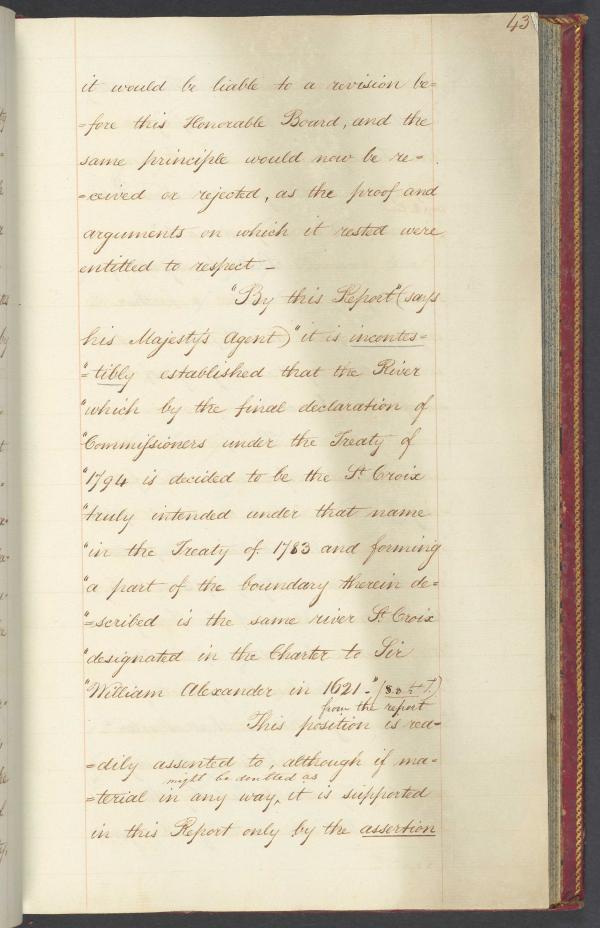 43
it would be liable to a revision be=
=fore this Honorable Board, and the
same principle would now be re=
=ceived or rejected, as the proof and
arguments on which it rested were
entitled to respect -
"By this Report" (says
his Majesty's Agent) "it is incontes=
"=tibly established that the River
"which by the final declaration of
"Commissioners under the Treaty of
"1794 is decided to be the St Croix
"truly intended under that name
"in the Treaty of 1783 and forming
"a part of the boundary therein de=
"=scribed is the same river St Croix
"designated in the Charter to Sir
"William Alexander in 1621."
from the report
This position is rea=
=dily assented to, although if ma=
might be doubted as
=terial in any way, it is supported
in this Report only by the assertion